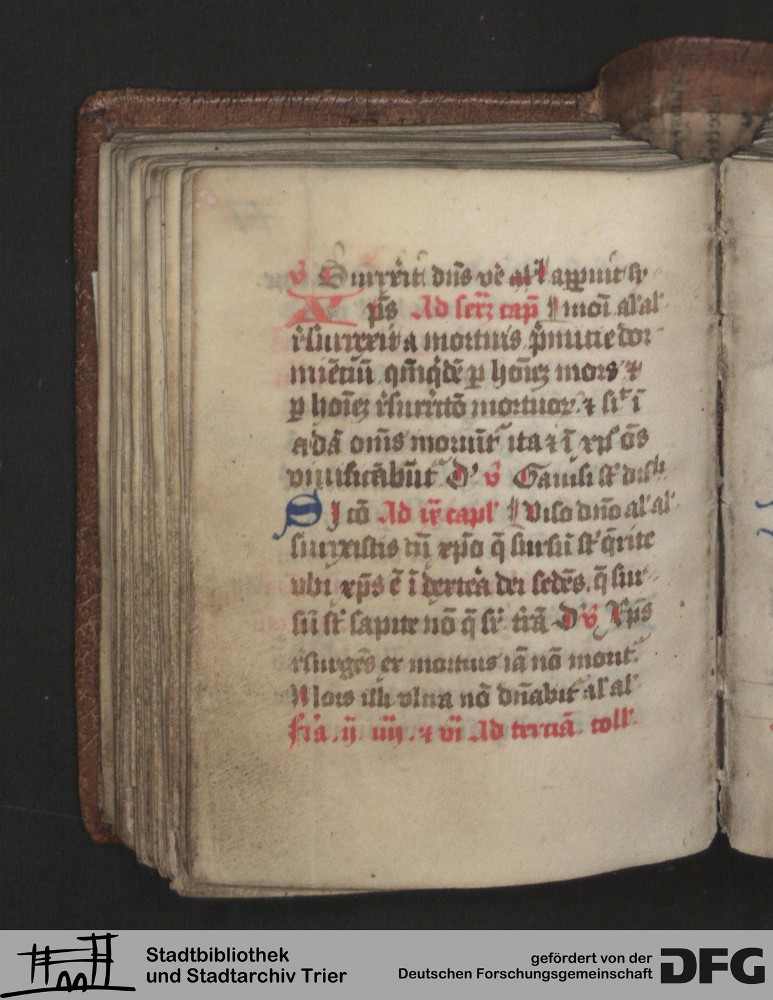 v̄ Surrexit dn̄s vē al̄ apparuit sy
Xp̄s Ad sextā cap̄ moī al̄ al̄
resurrexit a mortuis p̄mitie dor
miēciū qm̄ qdē p hoīez mors ⁊
p hoīez resurrectō mortuorꝝ ⁊ sic̄ ī
adā om̄s moriūt᷑ ita ⁊ ī xp̄o om̄s
viuificabūt᷑ D' v̄ Gauisi st̄ disc̄
Si cō Ad ix capl' Viso dn̄o al̄ al̄
surrexistis cū xp̄o q̄ sursū st̄ q̄rite
vbi xp̄s ē ī dextera dei sedēs. q̄ sur
sū st̄ sapite nō q̄ sr̄ t̄rā D' v̄ Xp̄s
resurgēs ex mortuis iā nō morit᷑
Mors illi vltra nō dn̄abit᷑ al̄ al̄
Fr̄ia .ij. iiij. ⁊ vi Ad terciā. coll'
Stadtbibliothek
und Stadtarchiv Trier
gefördert von der
Deutschen Forschungsgemeinschaft
DFG